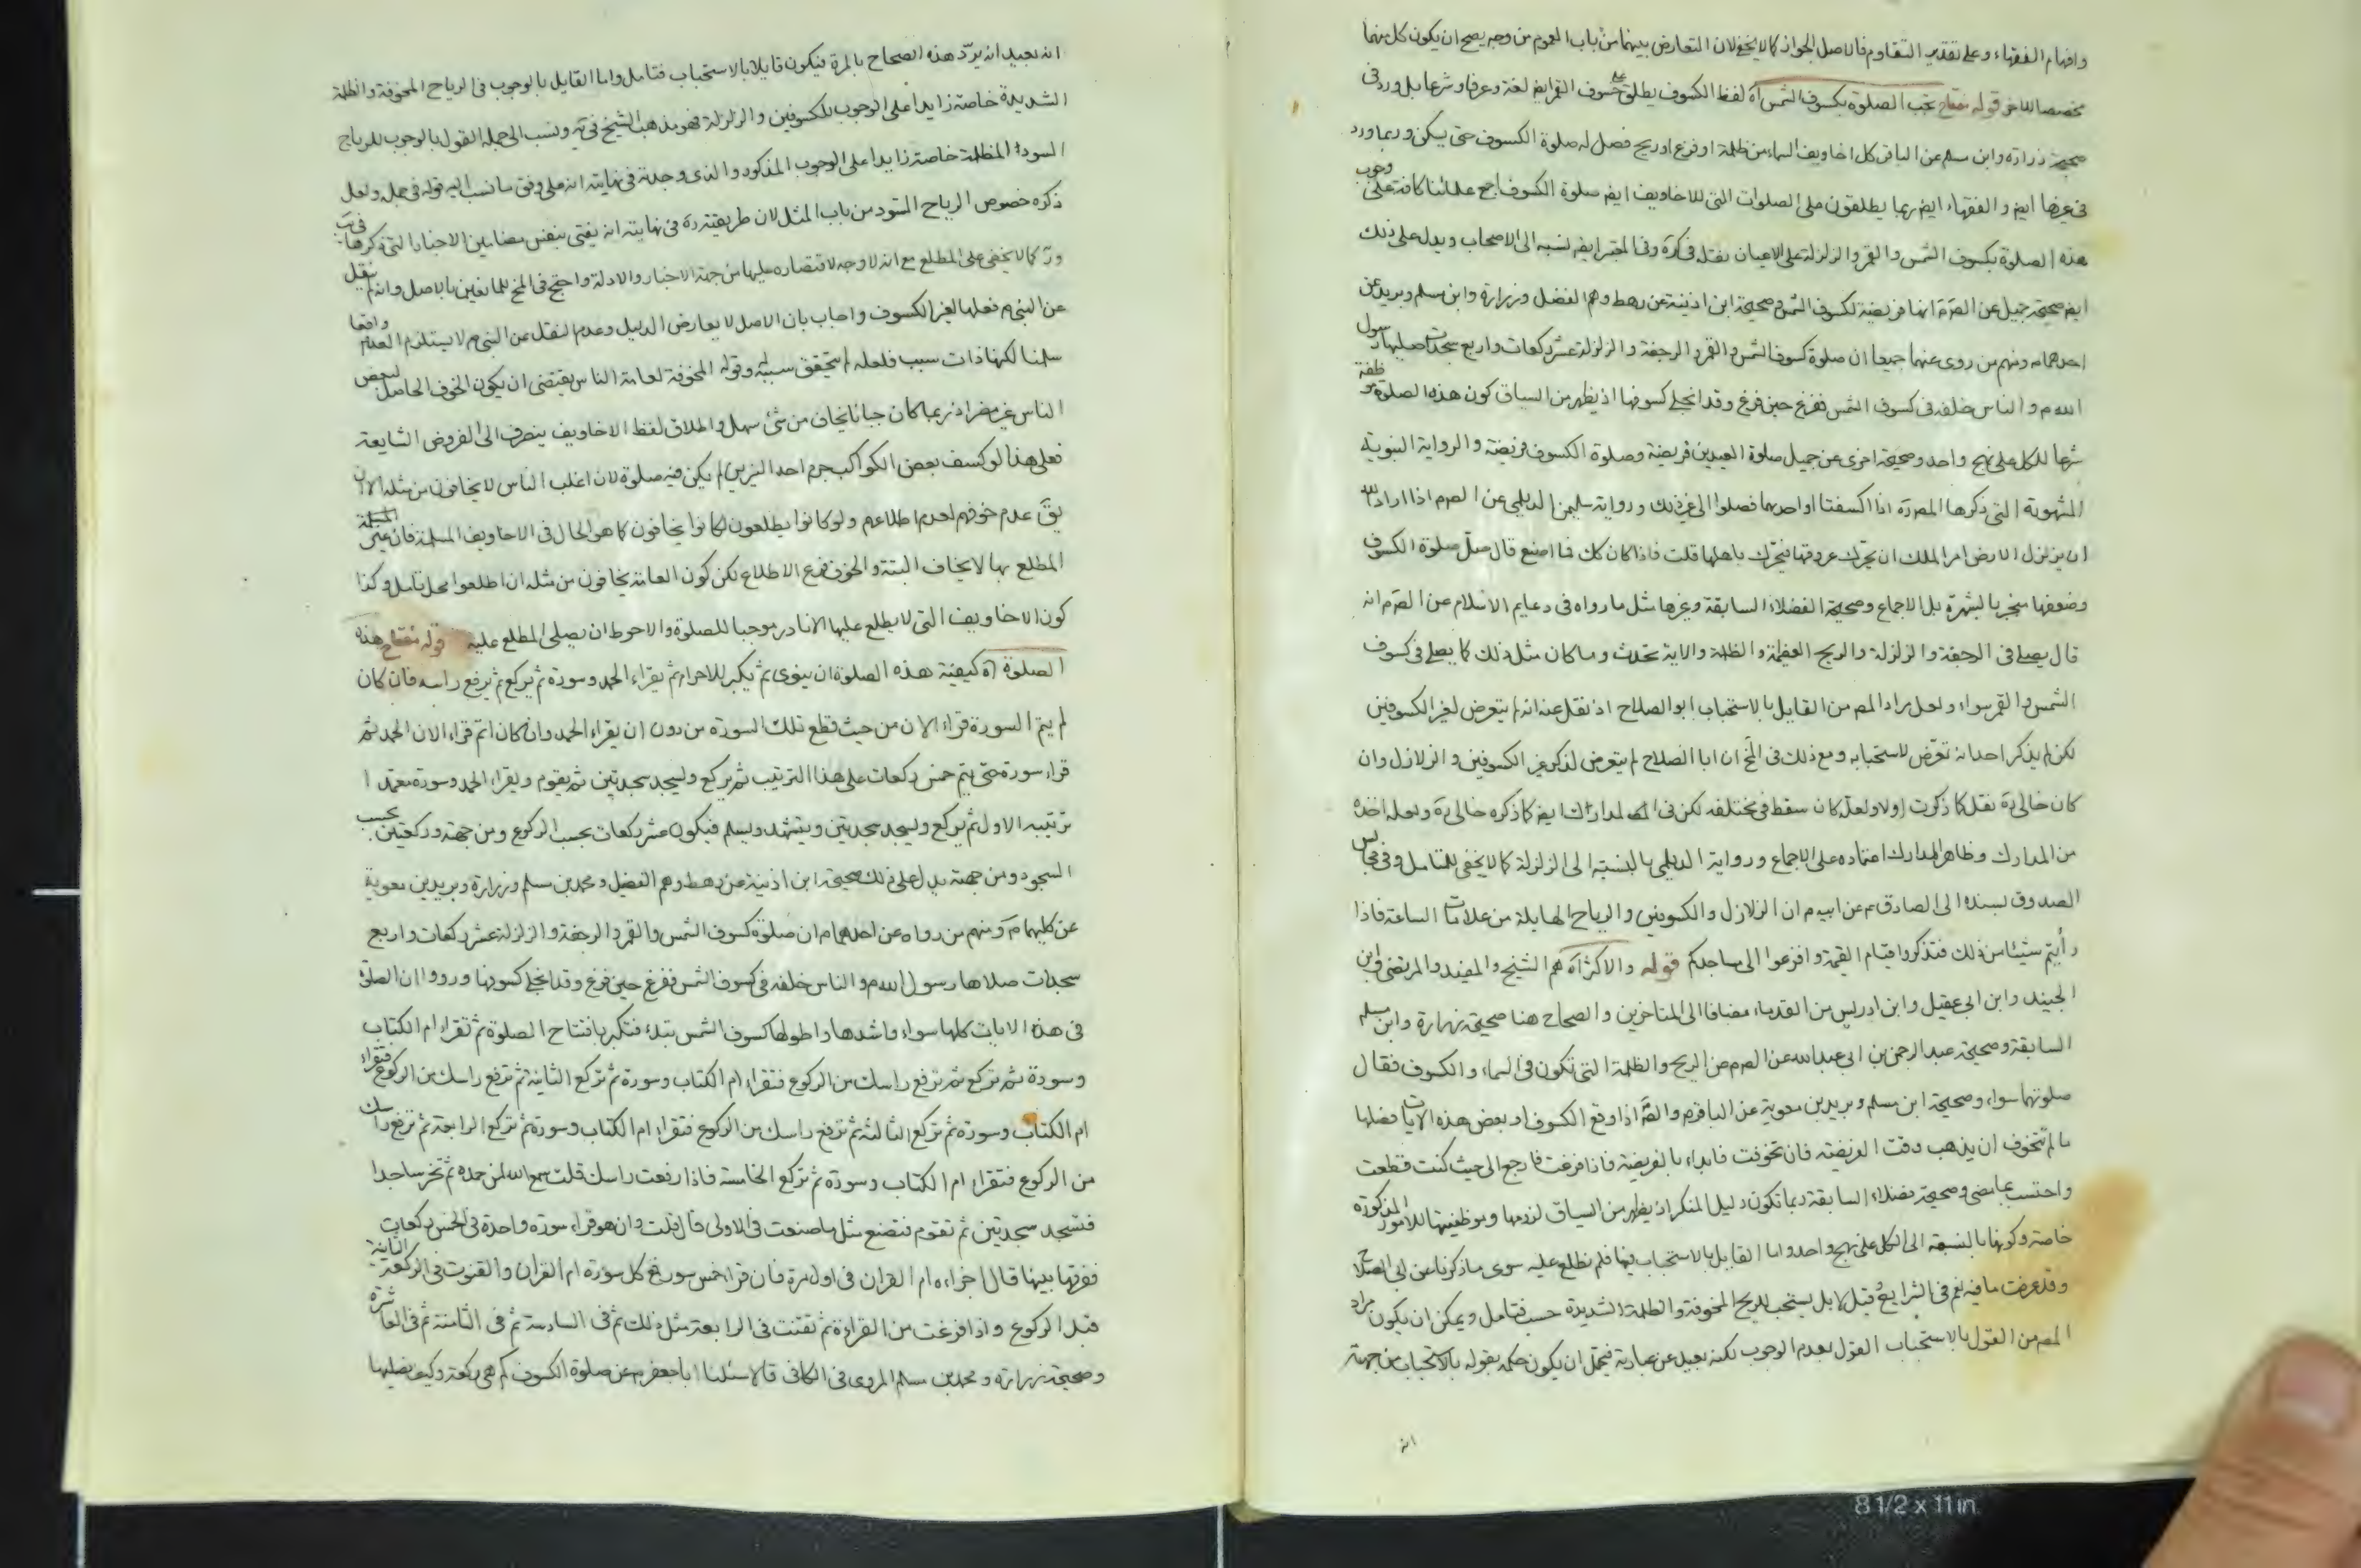 وافهام الفقهاء وعلى تقدير التقاوم فالاصل الجواز كما لا يخفى لان التعارض بينهما من باب العموم من وجه يصح ان يكون كل منهما
مخصصا للاخر قوله مفتاح تجب الصلوة بكسوف الشمس آه لفظ الكسوف يطلق على خسوف القمر ايض لغة وعرفا وشرعا بل ورد في
صحيحة زرارة وابن مسلم عن الباقر كل اخاويف السماء من ظلمة او فزع او ريح فصل له صلوة الكسوف حتى يسكن وربما ورد
في غيرها ايض والفقهاء ايض ربما يطلقون على الصلوات التي للاخاويف ايض صلوة الكسوف اجمع علمائنا كافة على وجوب
هذه الصلوة بكسوف الشمس والقمر والزلزلة على الاعيان نقله في كرة وفي المعتبر ايض نسبه الى الاصحاب ويدل على ذلك
ايض صحيحة جميل عن الصم انها فريضة لكسوف الشمس وصحيحة ابن اذينة عن رهط وهم الفضل وزرارة وابن مسلم وبريد عن
احدهما ومنهم من روى عنهما جميعا ان صلوة كسوف الشمس والقمر والرجفة والزلزلة عشر ركعات واربع سجدات صليها رسول
الله م والناس خلفه في كسوف الشمس ففرغ حين فرغ وقد انجلى كسوفها اذ يظهر من السياق كون هذه الصلوة موظفة
شرعا للكل على نهج واحد وصحيحة اخرى عن جميل صلوة العيدين فريضة وصلوة الكسوف فريضة والرواية النبوية
المشهورة التي ذكرها المص ره اذا انكسفتا او احدهما فصلوا الى غير ذلك ورواية سليمن الديلمي عن الصم اذا اراد الله
ان يزلزل الارض امر الملك ان يحرك عروقها فيحرك باهلها قلت فاذا كان كك فما اصنع قال صل صلوة الكسوف
وضعفها منجبر بالشهرة بل الاجماع وصحيحة الفضلاء السابقة وغيرها مثل ما رواه في دعايم الاسلام عن الصم انه
قال يصلى في الرجفة والزلزلة والريح العظيمة والظلمة والاية تحدث وما كان مثل ذلك كما يصلى في كسوف
الشمس والقمر سواء ولعل مراد المص من القايل بالاستحباب ابو الصلاح اذ نقل عنه انه لم يتعرض لغير الكسوفين
لكن لم يذكر احد انه تعرض لاستحبابه ومع ذلك في المخ ان ابا الصلاح لم يتعرض لذكر غير الكسوفين والزلازل وان
كان خالي ره نقل كما ذكرت اولا ولعله كان سقط في مختلفه لكن في المدارك ايض كما ذكره خالي ره ولعله اخذه
من المدارك وظاهر المدارك اعتماده على الاجماع ورواية الديلمي بالنسبة الى الزلزلة كما لا يخفى للمتامل وفي مجالس
الصدوق بسنده الى الصادق عم عن ابيه م ان الزلازل والكسوفين والرياح الهايلة من علامات الساعة فاذا
رأيتم شيئا من ذلك فتذكروا قيام القيمة وافزعوا الى مساجدكم قوله والاكثر آه هم الشيخ والمفيد والمرتضى وابن
الجنيد وابن ابي عقيل وابن ادريس من القدماء مضافا الى المتاخرين والصحاح هنا صحيحة زرارة وابن مسلم
السابقة وصحيحة عبد الرحمن بن ابي عبد الله عن الصم عن الريح والظلمة التي تكون في السماء والكسوف فقال
صلوتهما سواء وصحيحة ابن مسلم وبريد بن معوية عن الباقر م والصم اذا وقع الكسوف او بعض هذه الايات فصلها
ما لم تتخوف ان يذهب وقت الفريضة فان تخوفت فابداء بالفريضة فاذا فرغت فارجع الى حيث كنت قطعت
واحتسب بما مضى وصحيحة فضلاء السابقة ربما تكون دليل المنكر اذ يظهر من السياق لزومها وموظفيتها للامور المذكورة
خاصة وكونها بالنسبة الى الكل على نهج واحد واما القايل بالاستحباب فيها فلم نطلع عليه سوى ما ذكرنا عن ابي الصلاح
وقد عرفت ما فيه نعم في الشرايع وقيل لا بل يستحب للريح المخوفة والظلمة الشديدة حسب فتامل ويمكن ان يكون مراد
المص من القول بالاستحباب القول بعدم الوجوب لكنه بعيد عن عبارته فيحتمل ان يكون حكمه بقوله بالاستحباب من جهة
انه
انه بعيد انه يرد هذه الصحاح بالمرة فيكون قايلا بالاستحباب فتامل واما القايل بالوجوب في الرياح المخوفة والظلمة
الشديدة خاصة زايدا على الوجوب للكسوفين والزلزلة فهو مذهب الشيخ في يه ونسب الى جمله القول بالوجوب للرياح
السوداء المظلمة خاصة زايدا على الوجوب المذكور والذي وجدته في نهايته انه على وفق ما نسب اليه قوله في جمله ولعل
ذكره خصوص الرياح السود من باب المثل لان طريقته ره في نهايته انه يفتى بنفس مضامين الاخبار التي ذكرها في يب
وير كما لا يخفى على المطلع مع انه لا وجه لاقتصاره عليها من جهة الاخبار والادلة واحتج في المخ للمانعين بالاصل وانه لم ينقل
عن النبي م فعلها لغير الكسوف واجاب بان الاصل لا يعارض الدليل وعدم النقل عن النبي م لا يستلزم العدم واقعا
سلمنا لكنها ذات سبب فلعله لم يتحقق سببه وقوله المخوفة لعامة الناس يقتضى ان يكون الخوف الحاصل لبعض
الناس غير مضر اذ ربما كان جبانا يخاف من شئ سهل واطلاق لفظ الاخاويف ينصرف الى الفروض الشايعة
فعلى هذا لو كسف بعض الكواكب جرم احد النيرين لم يكن فيه صلوة لان اغلب الناس لا يخافون من مثله الا ان
يق عدم خوفهم لعدم اطلاعهم ولو كانوا يطلعون لكانوا يخافون كما هو الحال في الاخاويف المسلمة فان غير
المطلع بها لا يخاف البتة والخوف فرع الاطلاع لكن كون العامة يخافون من مثله ان اطلعوا محل تامل وكذا
كون الاخاويف التي لا يطلع عليها الا نادر موجبا للصلوة والاحوط ان يصلى المطلع عليه قوله مفتاح هذه
الصلوة آه كيفية هذه الصلوة ان ينوى ثم يكبر للاحرام ثم يقراء الحمد وسورة ثم يركع ثم يرفع راسه فان كان
لم يتم السورة قراء الان من حيث قطع تلك السورة من دون ان يقراء الحمد وان كان اتم قراء الان الحمد ثم
قراء سورة حتى يتم خمس ركعات على هذا الترتيب ثم يركع وليسجد سجدتين ثم يقوم ويقراء الحمد وسورة معتمدا
ترتيبه الاول ثم يركع ويسجد سجدتين ويتشهد ويسلم فيكون عشر ركعات بحسب الركوع ومن جهة وركعتين بحسب
السجود ومن جهة يدل على ذلك صحيحة ابن اذينة عن رهط وهم الفضيل ومحمد بن مسلم وزرارة وبريد بن معوية
عن كليهما م ومنهم من رواه عن احدهما م ان صلوة كسوف الشمس والقمر والرجفة والزلزلة عشر ركعات واربع
سجدات صلاها رسول الله م والناس خلفه في كسوف الشمس ففرغ حين فرغ وقد انجلى كسوفها ورووا ان الصلوة
في هذه الايات كلها سواء واشدها واطولها كسوف الشمس تبدء فتكبر بافتتاح الصلوة ثم تقراء ام الكتاب
وسورة ثم تركع ثم ترفع راسك من الركوع فتقراء ام الكتاب وسورة ثم تركع الثانية ثم ترفع راسك من الركوع فتقراء
ام الكتاب وسورة ثم تركع الثالثة ثم ترفع راسك من الركوع فتقراء ام الكتاب وسورة ثم تركع الرابعة ثم ترفع راسك
من الركوع فتقراء ام الكتاب وسورة ثم تركع الخامسة فاذا رفعت راسك قلت سمع الله لمن حمده ثم تخر ساجدا
فتسجد سجدتين ثم تقوم فتصنع مثل ما صنعت في الاولى قال قلت وان هو قراء سورة واحدة في الخمس ركعات
ففرقها بينها قال اجزاءه ام القران في اول مرة فان قراء خمس سور فمع كل سورة ام القران والقنوت في الركعة الثانية
قبل الركوع واذا فرغت من القراءة ثم تقنت في الرابعة مثل ذلك ثم في السادسة ثم في الثامنة ثم في العاشرة
وصحيحة زرارة ومحمد بن مسلم المروى في الكافى قالا سئلنا ابا جعفر م عن صلوة الكسوف كم هي ركعة وكيف نصليها
8 1/2 x 11 in.